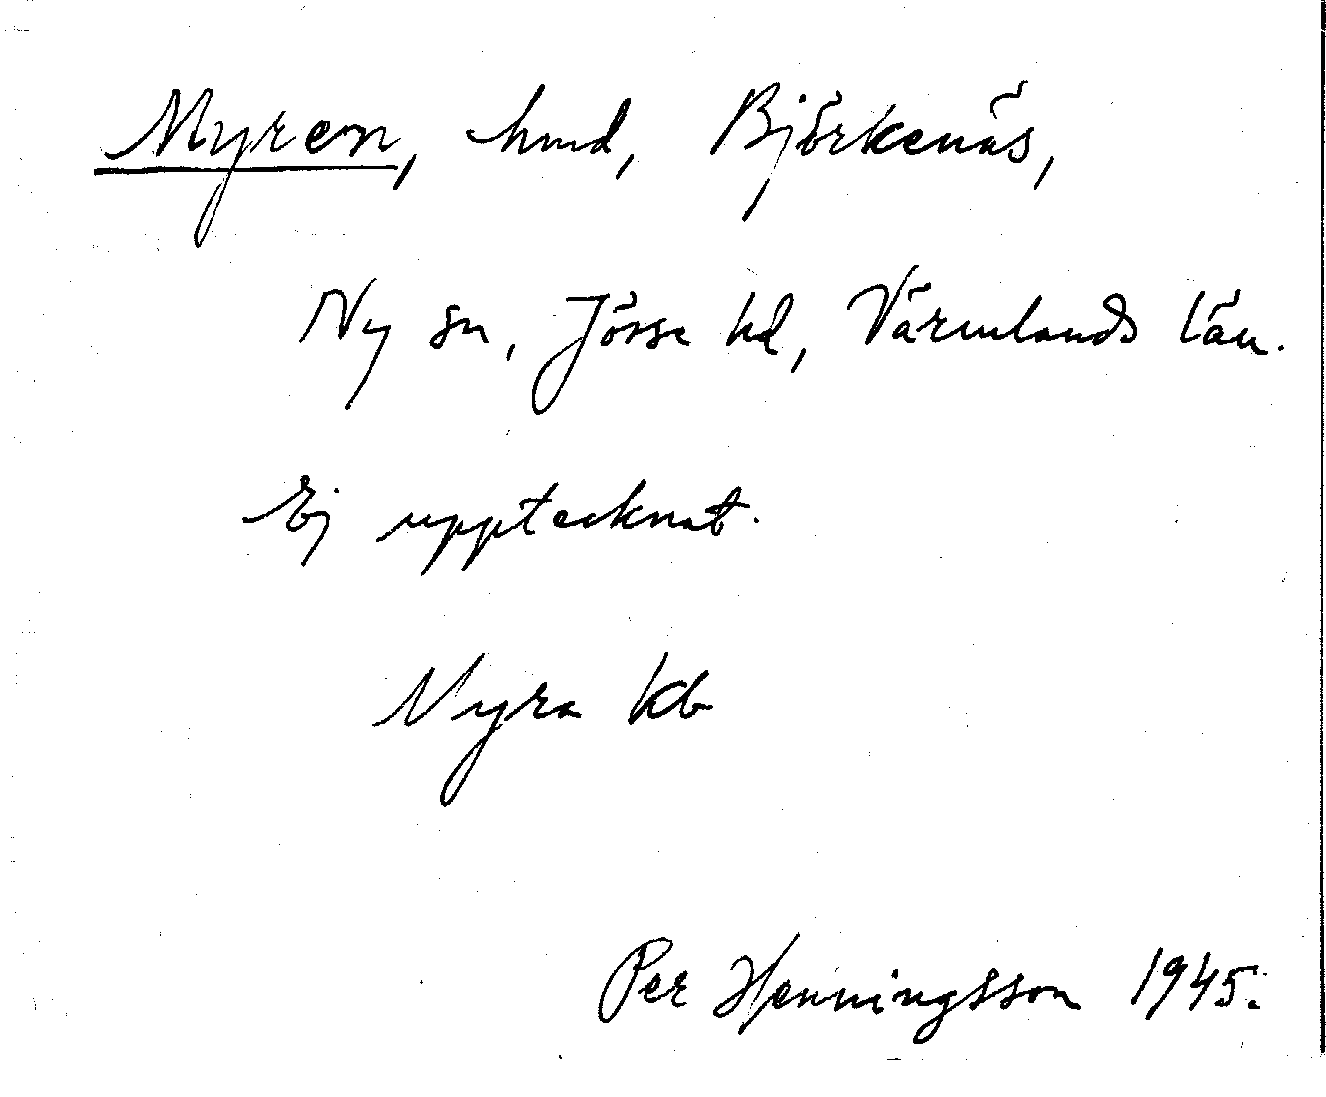 Myren, hmd, Björkenäs,
Ny sn, Jösse hd, Värmlands län.
Ej upptecknat.
Myra kb
Per Henningsson 1945.